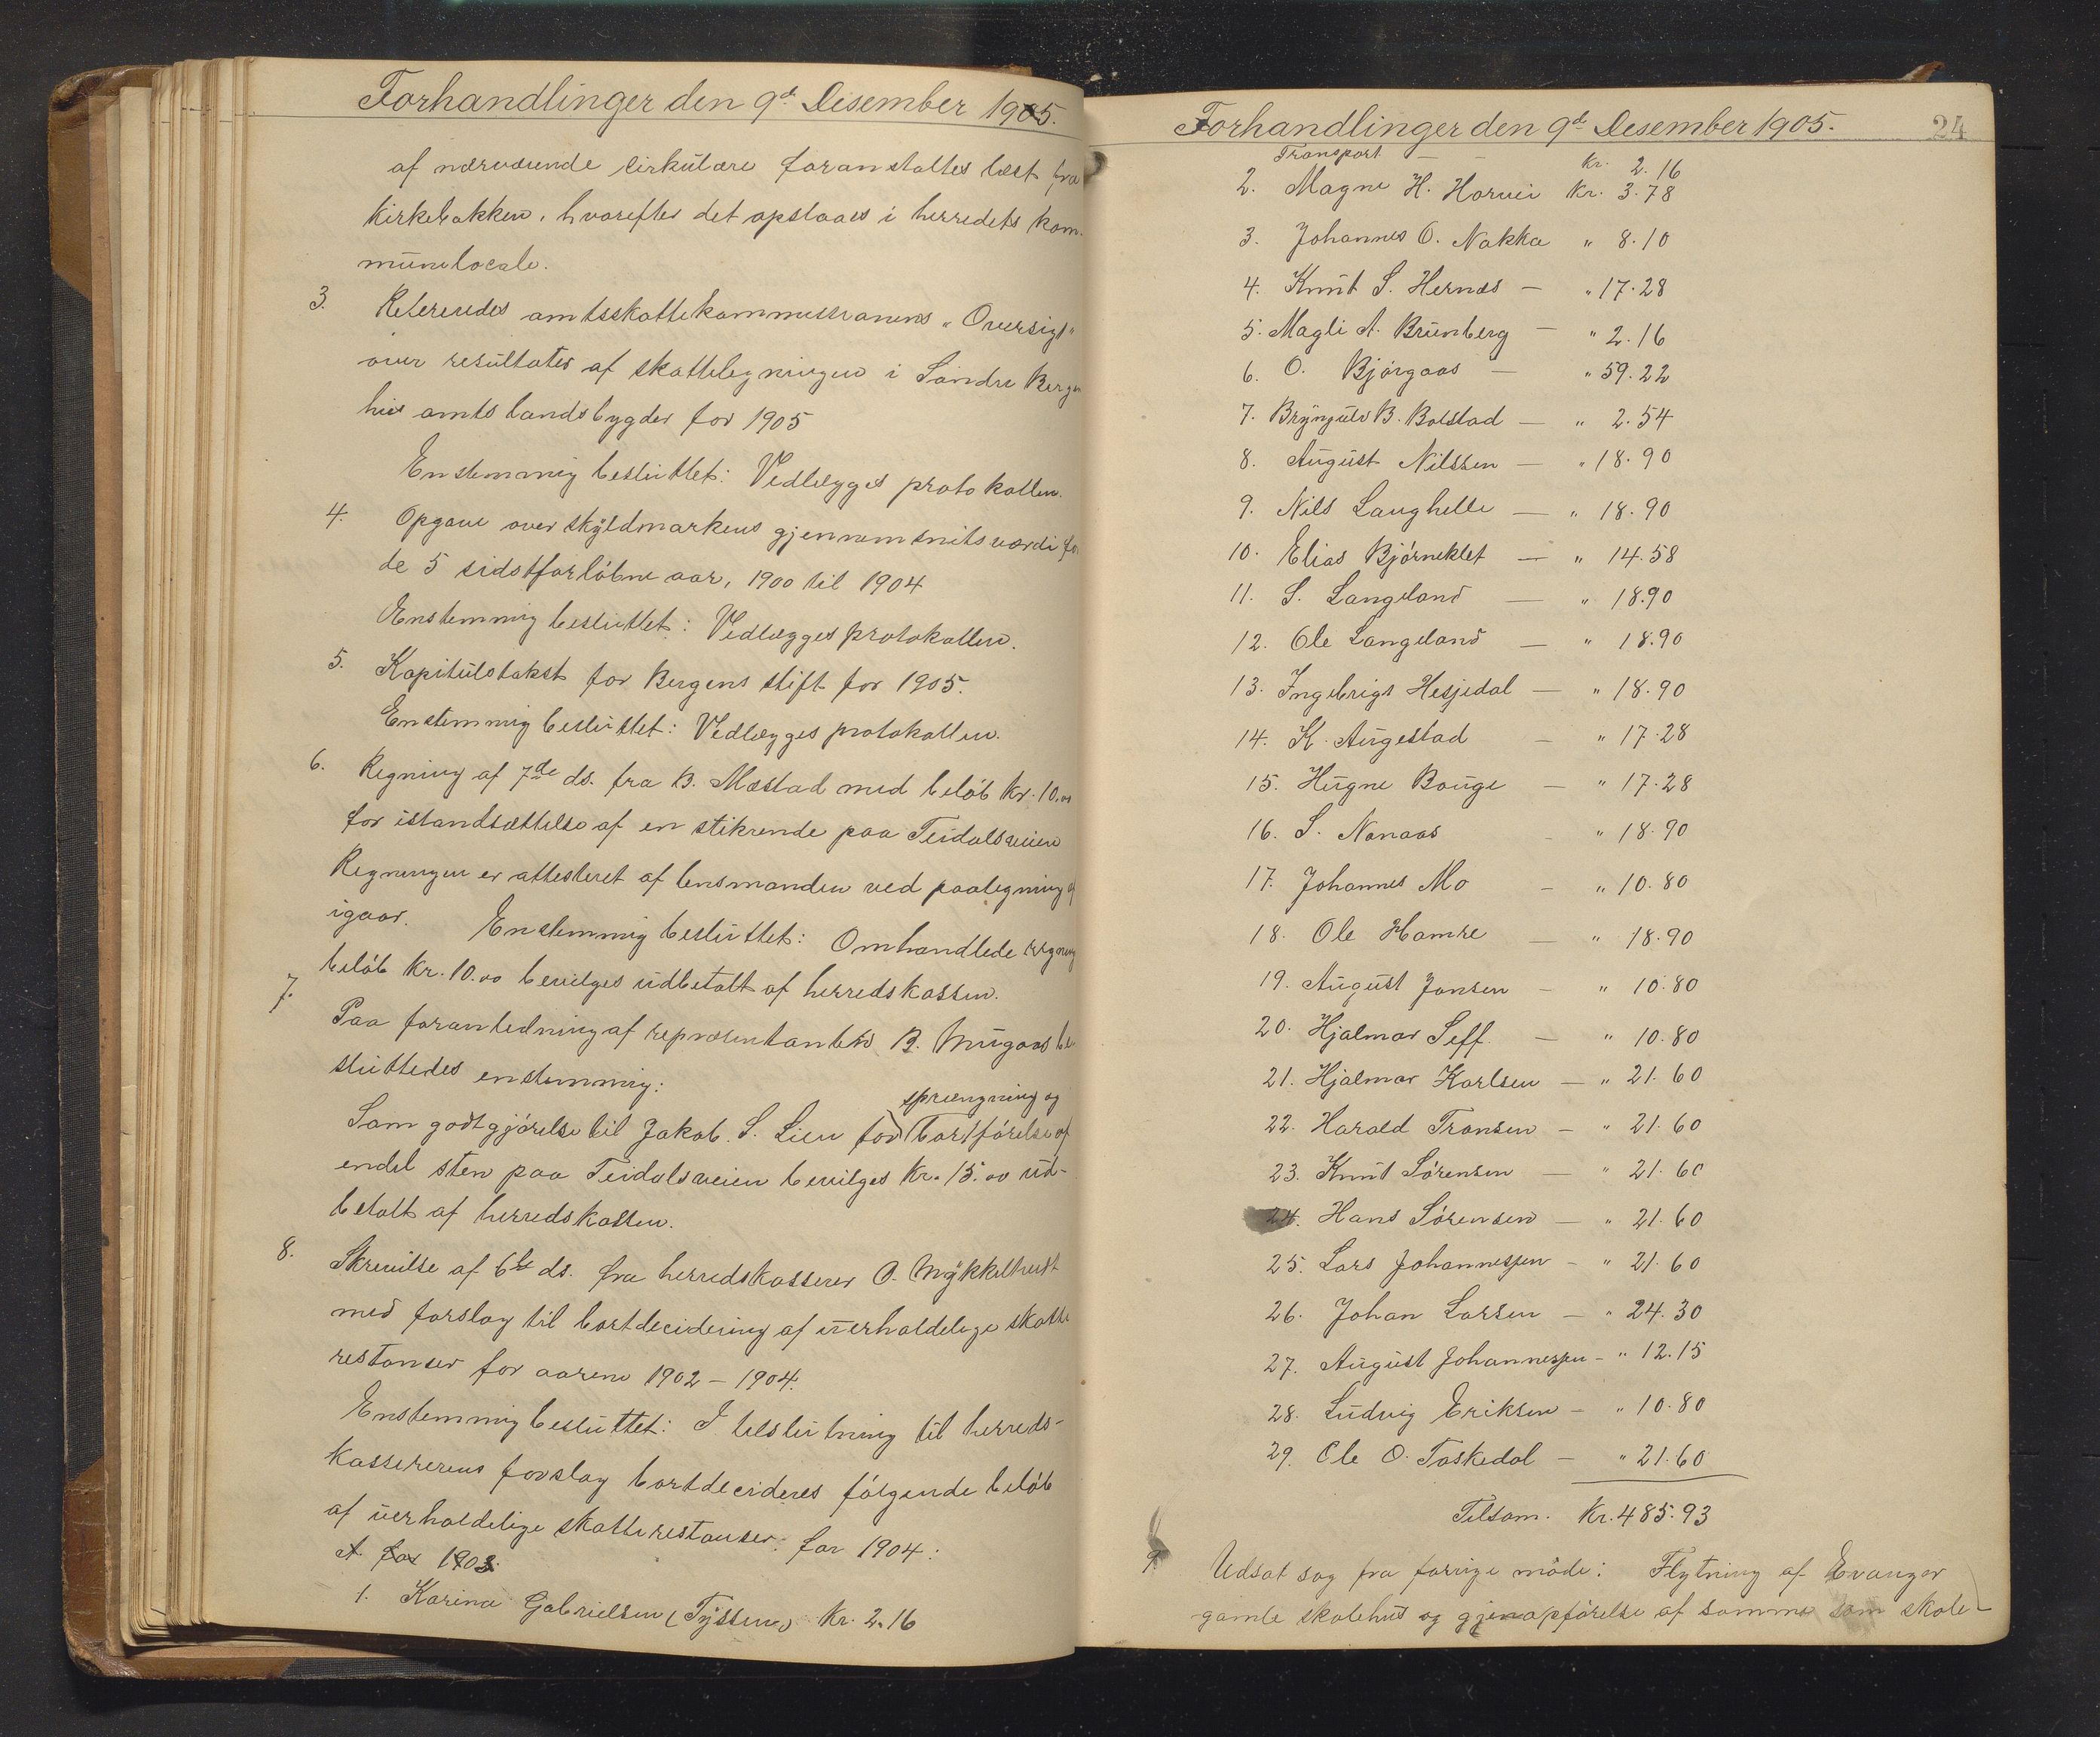 Forhandlinger den 9d. Desember 1905.
af nærværende cirkulære foranstaltes læst fra
kirkebakken, hvorefter det opslaaes i herredets kom-
munelocale.
3. Refereredes amtsskattekommissionens "Oversigt"
over resultatet af skattelegningen i Søndre Bergen
hus amts landsbygder for 1905
Enstemmig besluttet: Vedlegges protokollen.
4. Opgave over skyldmarkens gjennemsnitsværdi for
de 5 sidstforløbne aar, 1900 til 1904
Enstemmig besluttet: Vedlægges protokollen.
5. Kapitulstakst for Bergens stift for 1905.
Enstemmig besluttet: Vedlægges protokollen.
6. Regning af 7de ds. fra B. Mæstad med beløb kr. 10.00
for istandsættelse af en stikrende paa Teidalsveien
Regningen er attesteret af lensmanden ved paategning af
igaar. Enstemmig besluttet: Omhandlede regning
beløb kr. 10.00 bevilges udbetalt af herredskassen.
7. Paa foranledning af repræsentanten B. Mugaas be-
sluttedes enstemmig:
sprængning og
Som godtgjørelse til Jakob S. Lien for bortførelse af
endel sten paa Teidalsveien bevilges kr. 15.00 ud-
betalt af herredskassen.
8. Skrivelse af 6te ds. fra herredskasserer O. Mykkelthvedt
med forslag til bortdecidering af uerholdelige skatte
restanser for aarene 1902 – 1904.
Enstemmig besluttet: I tilslutning til herreds-
kassererens forslag bortdecideres følgende beløb
af uerholdelige skatterestanser: for 1904:
A. for 1903.
1. Karina Gabrielsen (Tyssen) Kr. 2.16
Forhandlinger den 9d. Desember 1905. 24
Transport — — kr. 2.16
2. Magne H. Horvei Kr. 3.78
3. Johannes O. Nakka " 8.10
4. Knut S. Hernes — " 17.28
5. Magli A. Brunberg — " 2.16
6. O. Bjørgaas — " 59.22
7. Brynjulv B. Bolstad — " 2.54
8. August Nilssen — " 18.90
9. Nils Langhelle — " 18.90
10. Elias Bjørneklet — " 14.58
11. S. Langeland — " 18.90
12. Ole Langeland — " 18.90
13. Ingebrigt Hesjedal — " 18.90
14. K. Augestad — " 17.28
15. Hugne Bouge — " 17.28
16. S. Nonaas - " 18.90
17. Johannes Mo - " 10.80
18. Ole Hamre — " 18.90
19. August Jonsen - " 10.80
20. Hjalmar Seff. — " 10.80
21. Hjalmar Karlsen — " 21.60
22. Harald Fransen — " 21.60
23. Knut Sørensen — " 21.60
24. Hans Sørensen — " 21.60
25. Lars Johannessen - " 21.60
26. Johan Larsen — " 24.30
27. August Johannessen - " 12.15
28. Ludvig Eriksen — " 10.80
29. Ole O. Taskedal — " 21.60
Tilsam. Kr. 485.93
9. Udsat sag fra forrige møde: Flytning af Evanger
gamle skolehus og gjenopførelse af samme som skole-